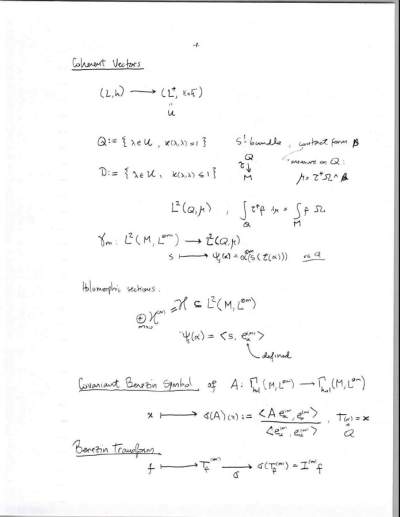 Coherent Vectors
(L,h) ⟶ (L*, k=h⁻¹)
U
Q := {λ∈U, k(λ,λ)=1} S¹-bundle, contact form β
D := {λ∈U, k(λ,λ)≤1} Q τ↓ M measure on Q: μ = τ*Ω ∧ β
L²(Q,μ), ∫_Q τ*f μ = ∫_M f Ω
γ_m: L²(M,L^m) ⟶ L²(Q,μ)
s ⟼ ψ_s(α) = α^m(s(τ(α))) on Q
Holomorphic sections:
⊕_{m≥0} H^(m) = H ⊆ L²(M,L^m)
ψ_s(α) = <s, e_α^(m)>
defined
Covariant Berezin Symbol of A: Γ_hol(M,L^m) ⟶ Γ_hol(M,L^m)
x ⟼ σ(A)(x) := <A e_α^(m), e_α^(m)> / <e_α^(m), e_α^(m)>, τ(α) = x
Q
Berezin Transform
f ⟼ T_f^(m) ⟶_σ σ(T_f^(m)) = I^(m) f